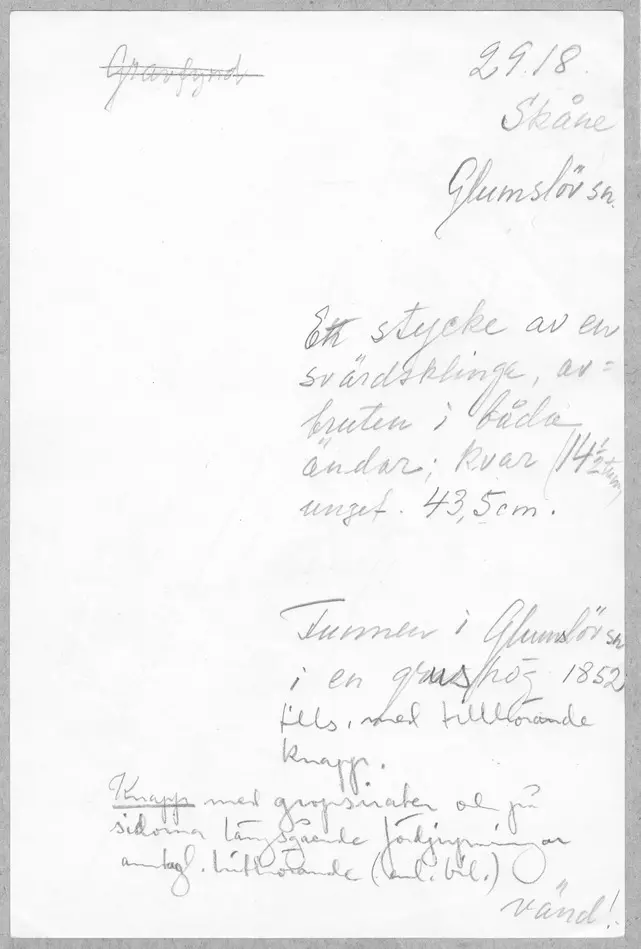 Gravfynd
2918.
Skåne
Glumslöv sn.
Ett stycke av en
svärdsklinga, av=
bruten i båda
ändar; kvar (14½ tum)
ungef. 43,5 cm.
Funnen i Glumslöv sn
i en grushög 1852
tills. med tillhörande
knapp.
Knapp med gropsirater och på
sidorna långsgående fördjupningar
antagl. hithörande (enl. bil.)
vänd!